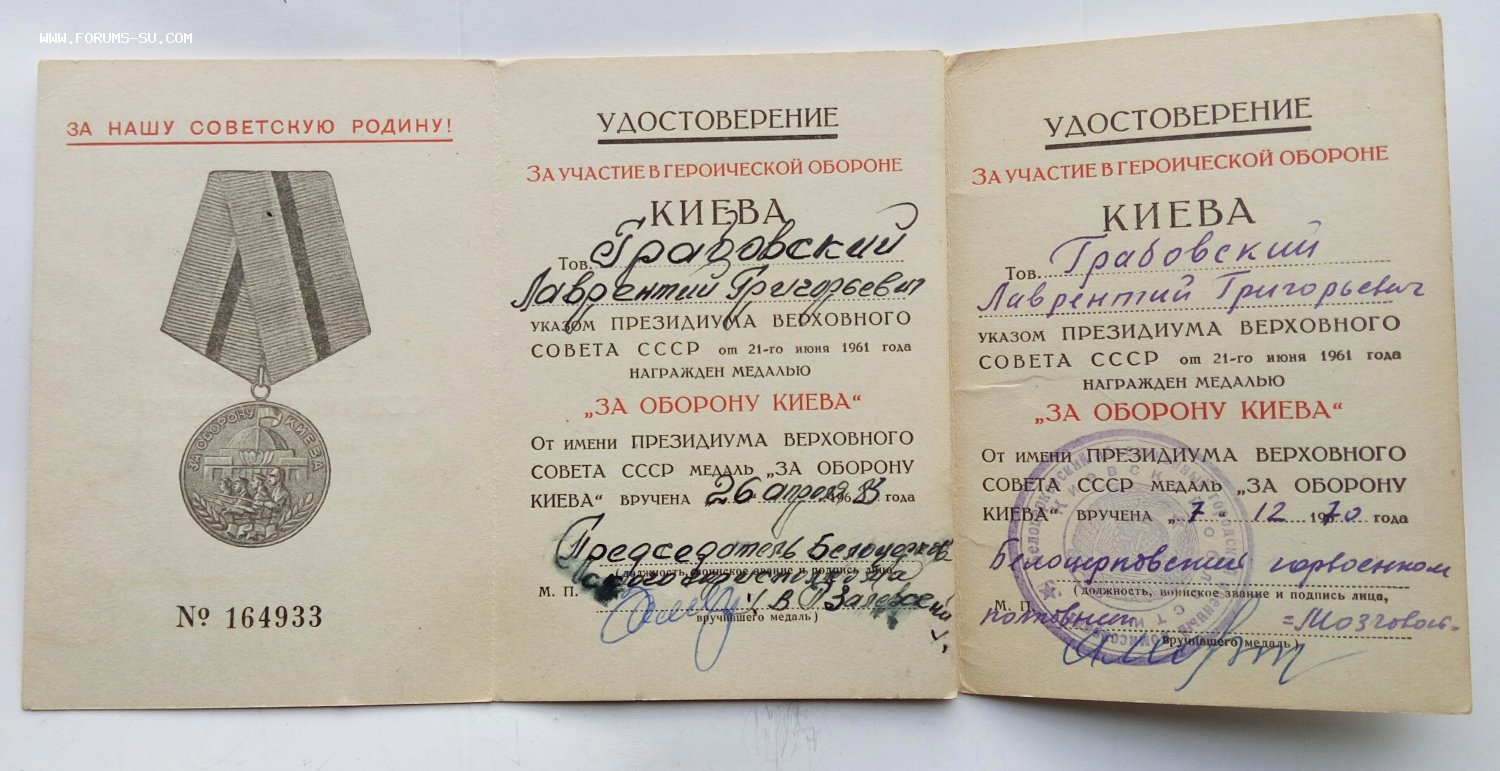 WWW.FORUMS-SU.COM
ЗА НАШУ СОВЕТСКУЮ РОДИНУ!
ЗА ОБОРОНУ КИЕВА
№ 164933
УДОСТОВЕРЕНИЕ
ЗА УЧАСТИЕ В ГЕРОИЧЕСКОЙ ОБОРОНЕ
КИЕВА
Тов. Грабовский
Лаврентий Григорьевич
УКАЗОМ ПРЕЗИДИУМА ВЕРХОВНОГО
СОВЕТА СССР от 21-го июня 1961 года
НАГРАЖДЕН МЕДАЛЬЮ
„ЗА ОБОРОНУ КИЕВА“
От имени ПРЕЗИДИУМА ВЕРХОВНОГО
СОВЕТА СССР медаль „ЗА ОБОРОНУ
КИЕВА“ вручена 26 апреля 196 года
Председатель Белоцерков
(должность, воинское звание и подпись лица,
ского горисполкома
М. П.
вручившего медаль)
УДОСТОВЕРЕНИЕ
ЗА УЧАСТИЕ В ГЕРОИЧЕСКОЙ ОБОРОНЕ
КИЕВА
Тов. Грабовский
Лаврентий Григорьевич
УКАЗОМ ПРЕЗИДИУМА ВЕРХОВНОГО
СОВЕТА СССР от 21-го июня 1961 года
НАГРАЖДЕН МЕДАЛЬЮ
„ЗА ОБОРОНУ КИЕВА“
От имени ПРЕЗИДИУМА ВЕРХОВНОГО
СОВЕТА СССР медаль „ЗА ОБОРОНУ
КИЕВА“ вручена „7“ 12 1970 года
Белоцерковский горвоенком
(должность, воинское звание и подпись лица,
М. П. полковник =Мозговой=
вручившего медаль)